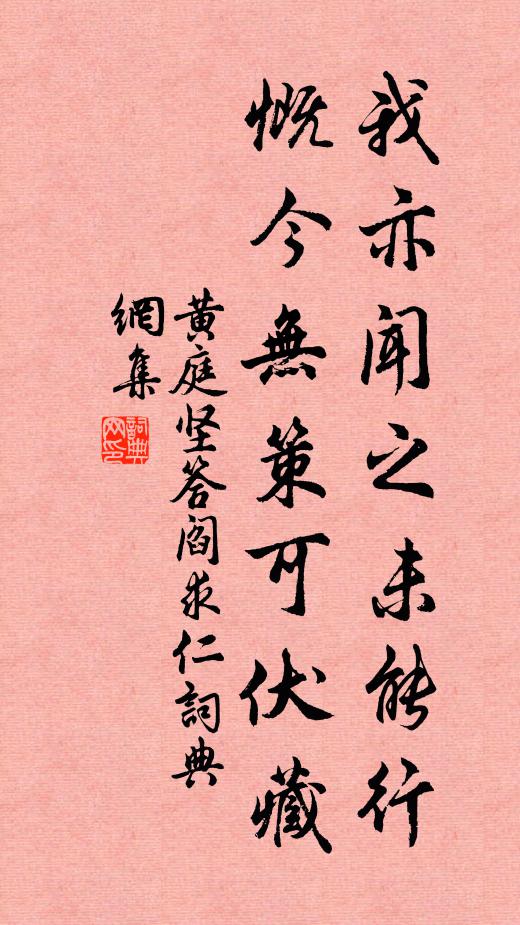 我亦闻之未能行
慨今無策可伏藏
黄庭坚答阎求仁詞典
網集
詞典
网印